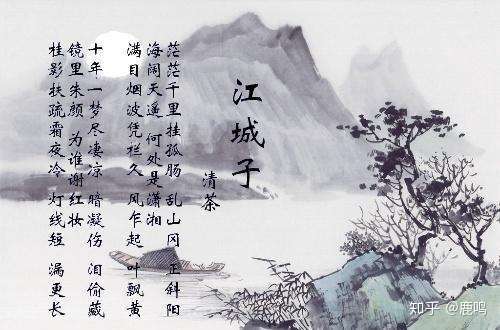 江城子
清茶
茫茫千里挂孤肠 乱山冈 正斜阳
海阔天遥 何处是潇湘
满目烟波凭栏久 风乍起 叶飘黄
十年一梦尽凄凉 暗凝伤 泪偷藏
镜里朱颜 为谁谢红妆
桂影扶疏霜夜冷 灯线短 漏更长
知乎 @鹿鸣